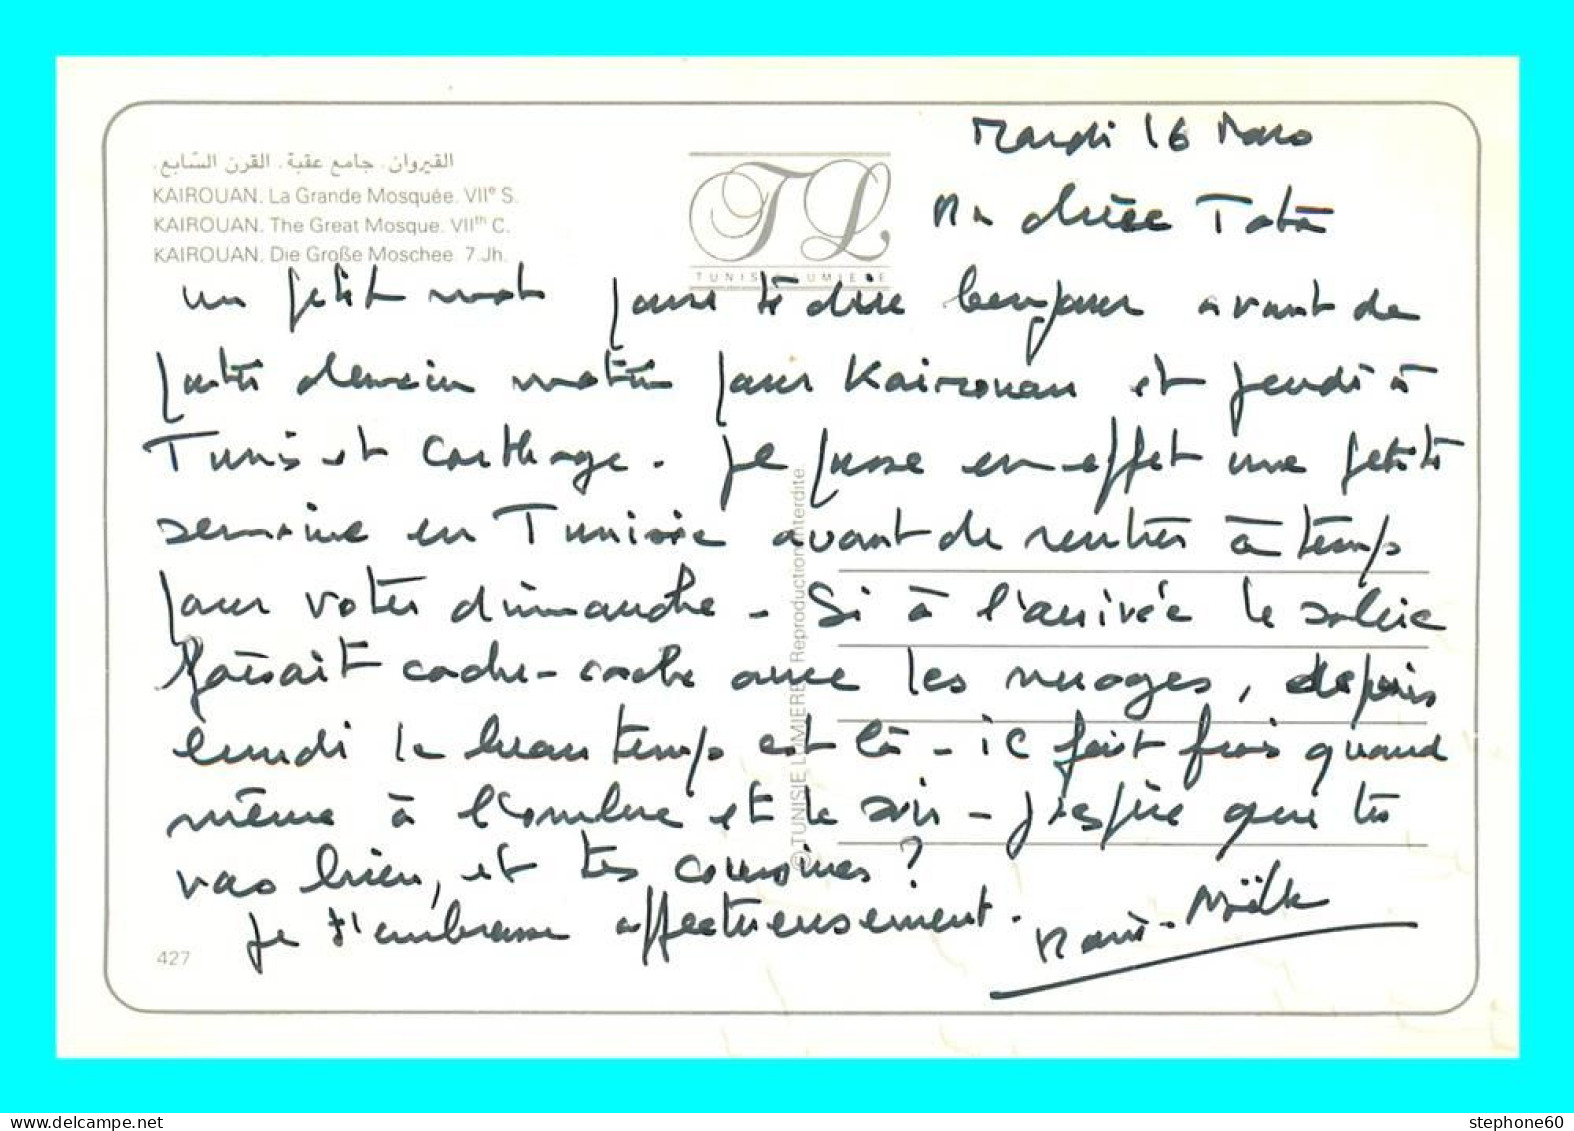 Mardi 16 Mars
القيروان. جامع عقبة. القرن السّابع.
KAIROUAN. La Grande Mosquée. VIIe S.
KAIROUAN. The Great Mosque. VIIth C.
KAIROUAN. Die Große Moschee. 7. Jh.
TL
TUNISIE LUMIERE
Ma chère Tata
un petit mot pour te dire bonjour avant de
partir demain matin pour Kairouan et jeudi à
Tunis et Carthage. Je passe en effet une petite
semaine en Tunisie avant de rentrer à temps
pour voter dimanche - Si à l'arrivée le soleil
faisait cache-cache avec les nuages, depuis
lundi le beau temps est là - il fait frais quand
même à l'ombre et le soir - J'espère que tu
vas bien, et tes cousines ?
Je t'embrasse affectueusement.
Marie-Noëlle
427
© TUNISIE LUMIERE Reproduction interdite.
stephone60